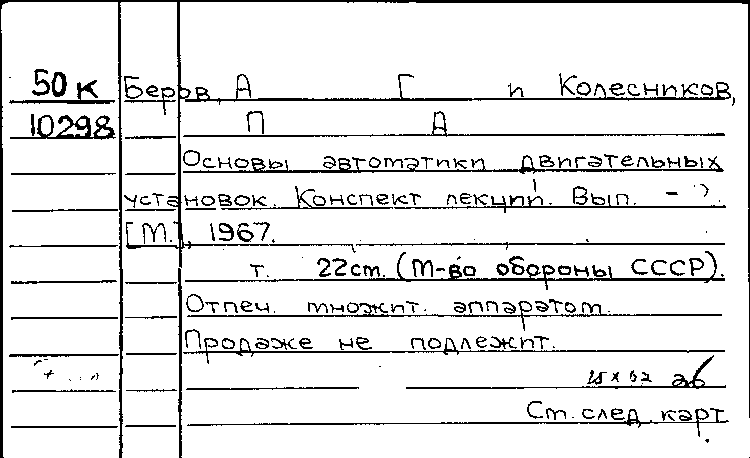 50к Беров, А Г и Колесников,
10298 П А
Основы автоматики двигательных
установок. Конспект лекций. Вып. - .
[М.], 1967.
т. 22см. (М-во обороны СССР).
Отпеч. множит. аппаратом.
Продаже не подлежит.
См. след. карт.